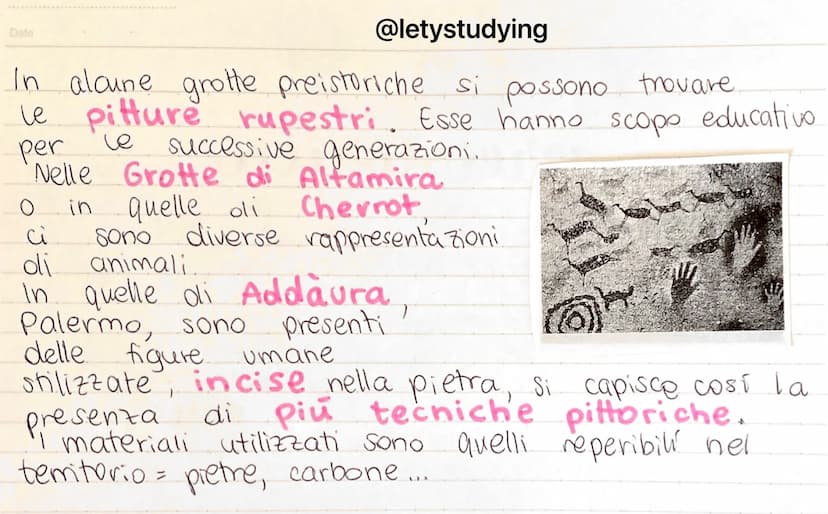 Date
@letystudying
In alcune grotte preistoriche si possono trovare
le pitture rupestri. Esse hanno scopo educativo
per le successive generazioni.
Nelle Grotte di Altamira
o in quelle di Chevrot,
ci sono diverse rappresentazioni
di animali.
In quelle di Addàura,
Palermo, sono presenti
delle figure umane
stilizzate, incise nella pietra, si capisce così la
presenza di più tecniche pittoriche.
I materiali utilizzati sono quelli reperibili nel
territorio = pietre, carbone...